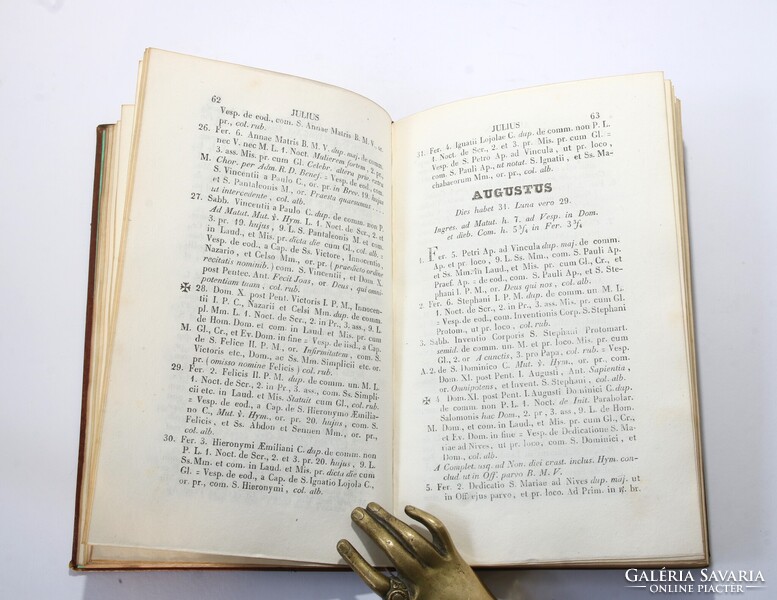 62
JULIUS
Vesp. de eod., com. S. Annae Matris B. M. V. or.
pr., col. rub.
26. Fer. 6. Annae Matris B. M. V. dup. maj. de comm.
nec V. nec M. L. 1. Noct. Mulierem fortem, 2. pr.,
3. ass., Mis. pr. cum Gl. Celebr. altera prio. extra
M. Chor. per Adm. R. D. Benef. = Vesp. de eod., com.
S. Vincentii a Paulo C., or. pr. in Brev. 19. hujus
et S. Pantaleonis M., or. Praesta quaesumus
ut intercedente, col. alb.
27. Sabb. Vincentii a Paulo C. dup. de comm. non P.
Ad Matut. Mut. V. Hym. L. 1. Noct. de Scr., 2. et
3. pr. 19. hujus, 9. L. S. Pantaleonis M., com. S.
in Laud. et Mis. pr. dicta die cum Gl., col. alb. =
Vesp. de eod., a Cap. de Ss. Victore, Innocentio,
Nazario, et Celso Mm., or. pr. (praedicto ordine
recitatis nominib.) com. S. Vincentii, et Dom. X
post Pentec. Ant. Fecit Joas, or. Deus, qui omni-
potentiam tuam, col. rub.
✠ 28. Dom. X post Pent. Victoris I. P. M., Innocen-
tii I. P. C., Nazarii et Celsi Mm. dup. de comm.
pl. Mm. L. 1. Noct. de Scr., 2. in Pr., 3. ass., 9. L.
de Hom. Dom. et com. in Laud. et Mis. pr. cum
M. Gl., Cr., et Ev. Dom. in fine = Vesp. de iisd., a Cap.
de S. Felice II. P. M., or. Infirmitatem, com. S.
Victoris etc., Dom., ac Ss. Mm. Simplicii etc. or.
pr. (omisso nomine Felicis) col. rub.
29. Fer. 2. Felicis II. P. M. dup. de comm. un. M. L.
1. Noct. de Scr., 2. in Pr., 3. ass., com. Ss. Simpli-
cii etc. in Laud. et Mis. Statuit cum Gl., col. rub.
= Vesp. de eod., a Cap. de S. Hieronymo Æmilia-
no C., Mut. V. Hym., or. pr. 20. hujus, com. S.
Felicis, et Ss. Abdon et Sennen Mm., or. pr.,
col. alb.
30. Fer. 3. Hieronymi Æmiliani C. dup. de comm. non
P. L. 1. Noct. de Scr., 2. et 3. pr. 20. hujus, 9. L.
Ss. Mm. et com. in Laud. et Mis. pr. dicta die cum
Gl. = Vesp. de eod., a Cap. de S. Ignatio Lojola C.,
or. pr., com. S. Hieronymi, col. alb.
JULIUS
63
31. Fer. 4. Ignatii Lojolae C. dup. de comm. non P. L.
1. Noct. de Scr., 2. et 3. pr. Mis. pr. cum Gl. =
Vesp. de S. Petro Ap. ad Vincula, ut pr. loco,
com. S. Pauli Ap., ut notat. S. Ignatii, et Ss. Ma-
chabaeorum Mm., or. pr., col. alb.
AUGUSTUS
Dies habet 31. Luna vero 29.
Ingres. ad Matut. h. 7. ad Vesp. in Dom.
et dieb. Com. h. 5 3/4 in Fer. 3 3/4
1. Fer. 5. Petri Ap. ad Vincula dup. maj. de comm.
Ap. et pr. loco, 9. L. Ss. Mm., com. S. Pauli Ap.
et Ss. Mm. in Laud., et Mis. pr. cum Gl., Cr., et
Praef. Ap. = Vesp. de eod., com. S. Pauli Ap., et S. Ste-
phani I. P. M., or. Deus qui nos, col. alb.
2. Fer. 6. Stephani I. P. M. dup. de comm. un. M. L.
1. Noct. de Scr., 2. in Pr., 3. ass., Mis. pr. cum Gl.
= Vesp. de eod., com. Inventionis Corp. S. Stephani
Protom., ut pr. loco, col. rub.
3. Sabb. Inventio Corporis S. Stephani Protomart.
semid. de comm. un. M. et pr. loco, Mis. pr. cum
Gl., 2. or A cunctis, 3. pro Papa, col. rub. = Vesp.
A. 2. de S. Dominico C. Mut. V. Hym., or. pr., com.
Dom. XI. post Pent. I. Augusti, Ant. Sapientia,
or. Omnipotens, et Invent. S. Stephani, col. alb.
✠ 4. Dom. XI. post Pent. I. Augusti Dominici C. dup.
de comm. non P. L. 1. Noct. de Init. Parabolar.
Salomonis hac Dom., 2. pr., 3. ass., 9. L. de Hom.
M. Dom., et com. in Laud., et Mis. pr. cum Gl., Cr.
et Ev. Dom. in fine = Vesp. de Dedicatione S. Ma-
riae ad Nives, ut pr. loco, com. S. Dominici, et
Dom., col. alb.
A Complet. usq. ad Non. diei crast. inclus. Hym. con-
clud. ut in Off. parvo B. M. V.
5. Fer. 2. Dedicatio S. Mariae ad Nives dup. maj. ut
in Off. ejus parvo, et pr. loco. Ad Prim. in ℟. br.
GALÉRIA SAVARIA
ONLINE PIACTÉR